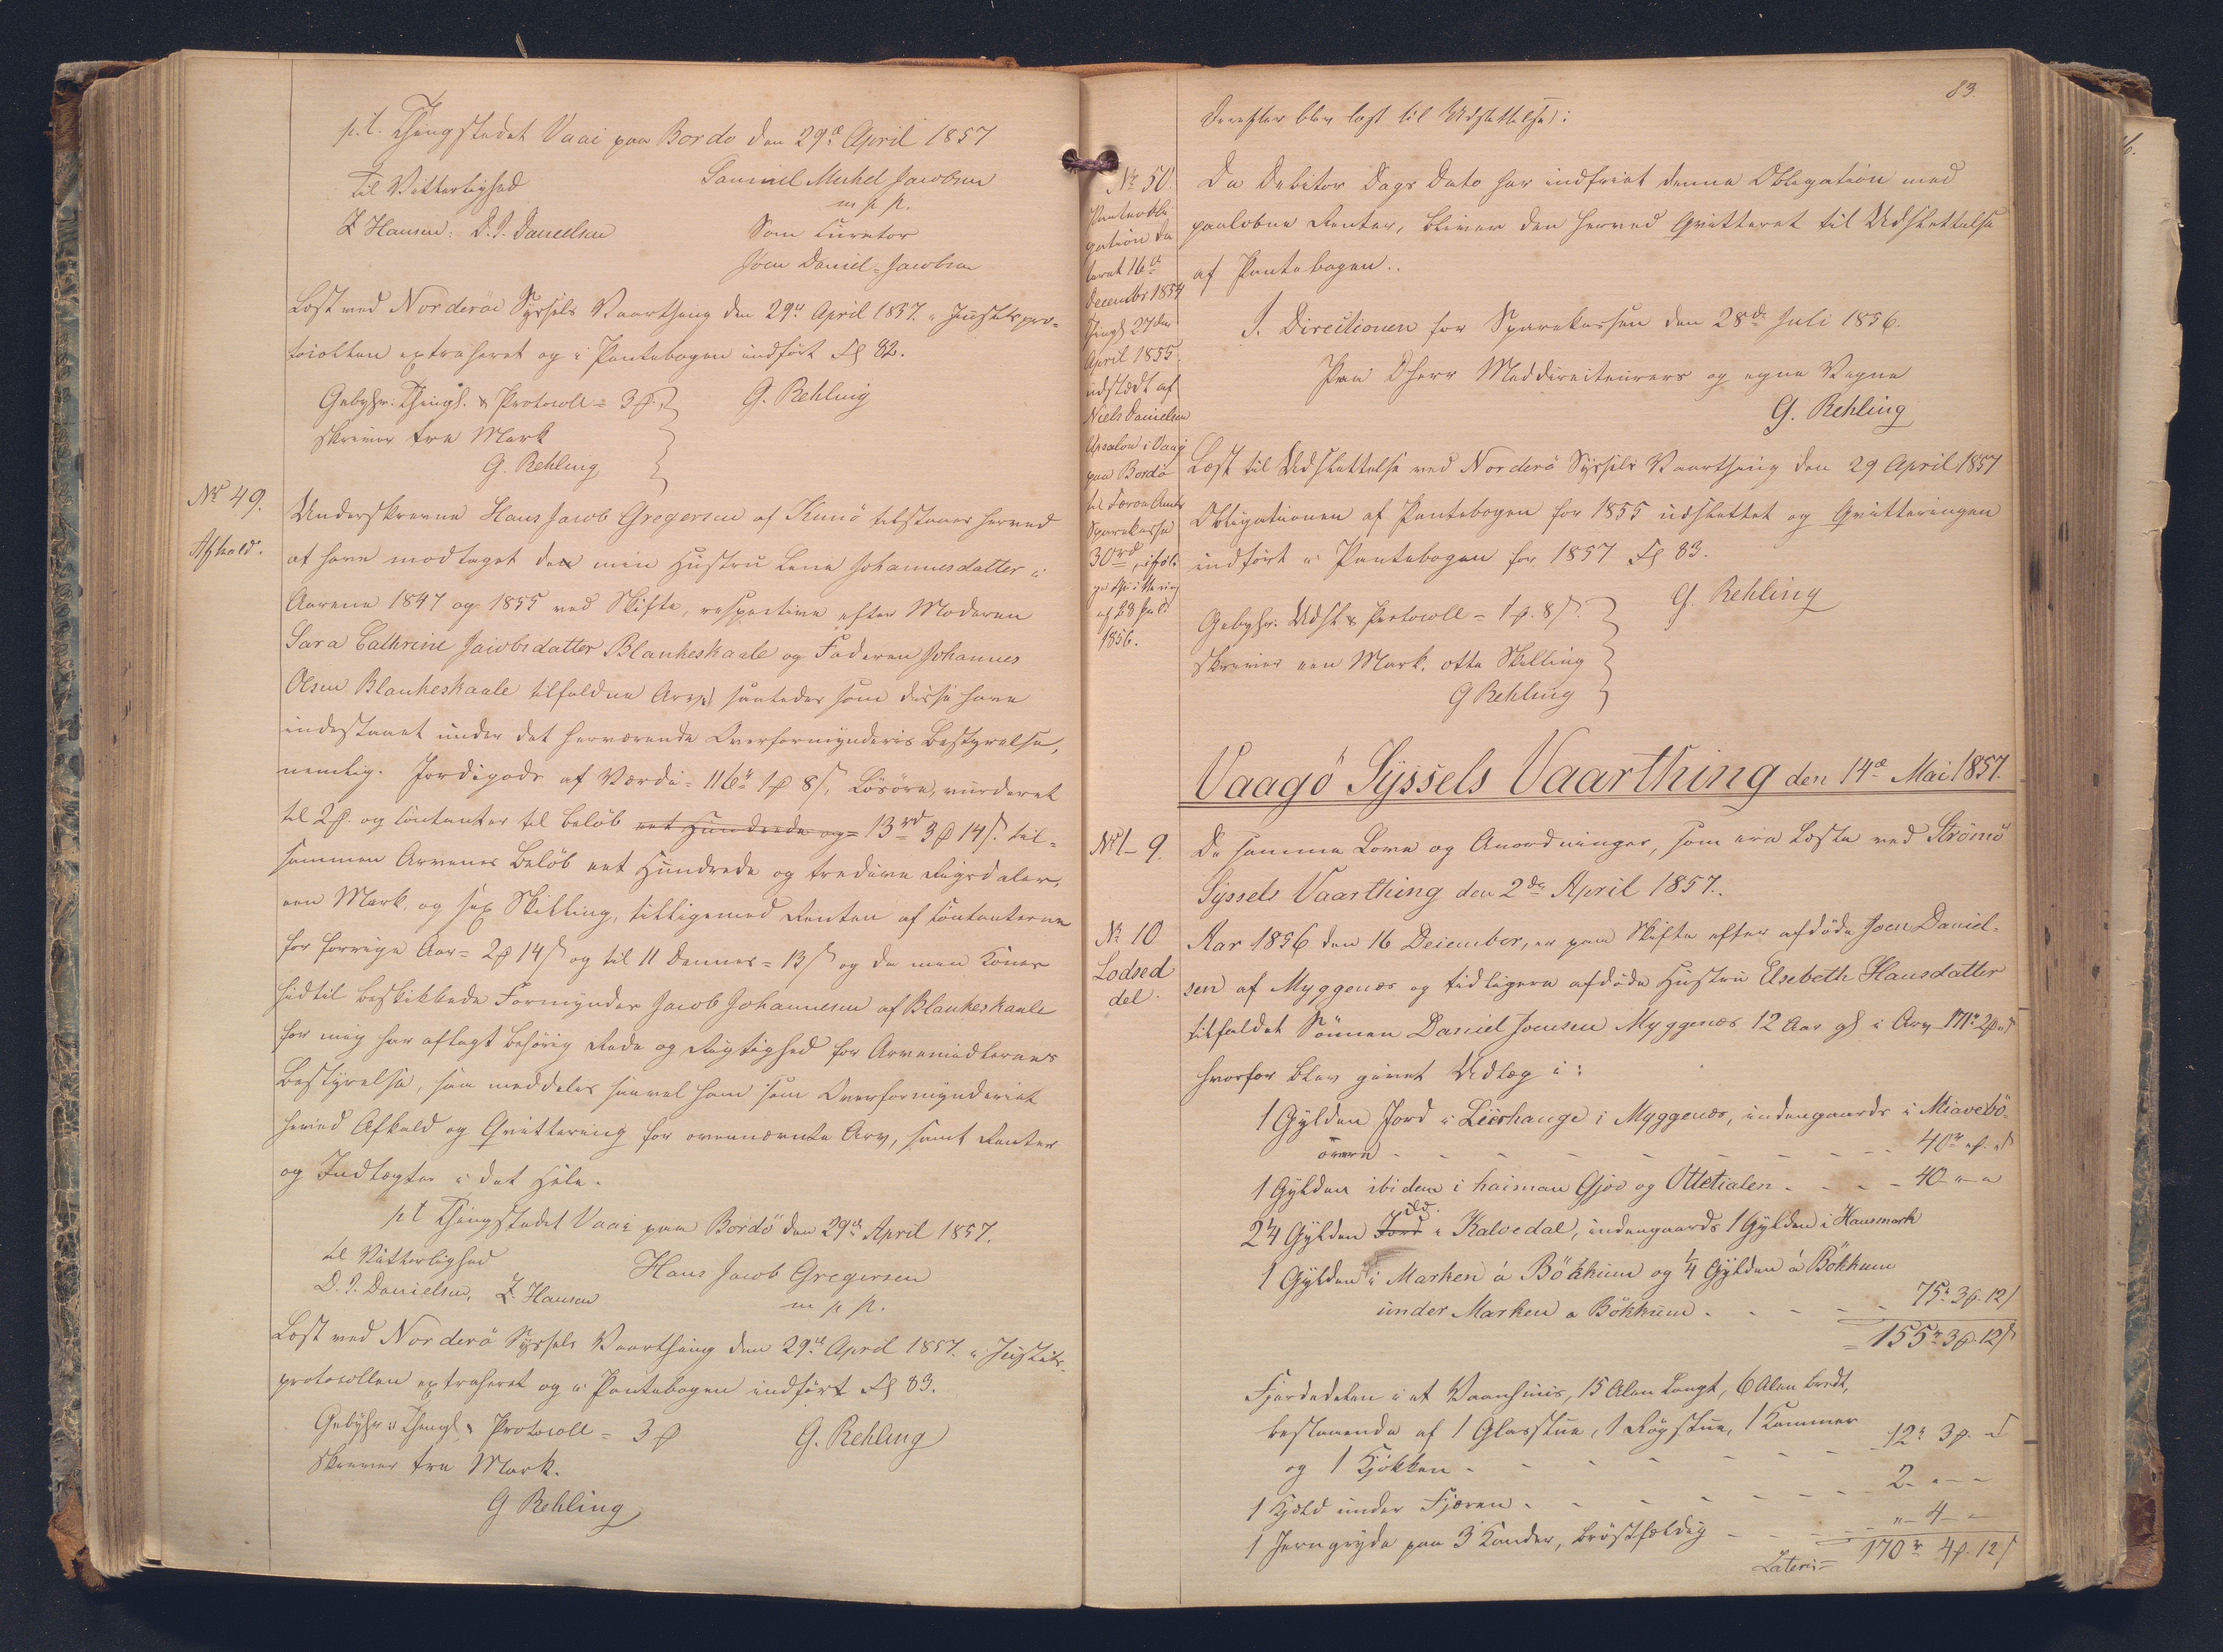 p.t. Thingstedet Vaai paa Bordo den 29de April 1857
Til Vitterlighed
Samuel Michel Jacobsen
m p p.
Z Hansen. D. J. Danielsen
Som Curator
Joen Daniel Jacobsen
Læst ved Norderöe Syssels Vaarthing den 29de April 1857. i Justitspro-
tocollen extraheret og i Pantebogen indført Fol 82.
Gebyhr: Thingl. & Protocoll = 3 ₻.
G. Rehling
skriver tre Mark
G. Rehling
No 49.
Afkald.
Underskrevne Hans Jacob Gregersen af Kunö tilstaaer herved
at have modtaget den min Hustru Lena Johannesdatter i
Aarene 1847 og 1855 ved Skifte, respective efter Moderen
Sara Cathrine Jacobsdatter Blankeskaale og Faderen Johannes
Olsen Blankeskaale tilfaldne Arv, saaledes som disse have
indestaaet under det herværende Overformynderies Bestyrelse,
nemlig. Jordegods af Værdi = 116r 1 ₻ 8 s, Lösöre, vurderet
til 2 ₻. og Contanter til Beløb eet Hundrede og = 13rd 3 ₻ 14 s. til-
sammen Arvenes Beløb eet Hundrede og tredive Rigsdaler,
een Mark, og sex Skilling, tilligemed Renten af Contanterne
for forrige Aar = 2 ₻ 14 s og til 11 Dennes = 13 s og da min Kones
hidtil beskikkede Formynder Jacob Johannesen af Blankeskaale
for mig har aflagt behörig Rede og Rigtighed for Arvemidlernes
Bestyrelse, saa meddeles saavel ham som Overformynderiet
herved Afkald og Qvittering for ovennævnte Arv, samt Renter
og Indtægter i det Hele.
pt Thingstedet Vaai paa Bordö den 29de April 1857.
til Vitterlighed
Hans Jacob Gregersen
D. J. Danielsen, Z. Hansen
m p p.
Læst ved Norderö Syssels Vaarthing den 29de April 1857. i Justits-
protocollen extraheret og i Pantebogen indført Fol 83.
Gebyhr: Thingl. & Protocoll = 3 ₻
G. Rehling
skriver tre Mark.
G Rehling
83
Derefter blev læst til Udslettelse:
No 50.
Panteobli
gation da
teret 16de
December 1854
Thingl 27de
April 1855
udstædt af
Niels Danielsen
Upsalen i Vaag
paa Bordö
til Færøe Amts
Sparekasse
30rd, iføl-
ge Qvittering
af 28 Juli
1856.
Da Debitor Dags Dato har indfriet denne Obligation med
paaløbne Renter, bliver den herved Qvitteret til Udslettelse
af Pantebogen.
I Directionen for Sparekassen den 28de Juli 1856.
Paa Dherr Meddirecteurers og egne Vegne
G. Rehling
Læst til Udslettelse ved Norderö Syssels Vaarthing den 29 April 1857
Obligationen af Pantebogen for 1855 udslettet og Qvitteringen
indført i Pantebogen for 1857 Fol 83.
G. Rehling
Gebyhr. Udsl & Protocoll = 1 ₻. 8 s.
skriver een Mark, otte Skilling
G Rehling
Vaagö Syssels Vaarthing den 14de Mai 1857.
No 1-9.
De samme Love og Anordninger, som ere læste ved Strömö
Syssels Vaarthing den 2den April 1857.
No 10
Lodsed
del.
Aar 1856 den 16 December, er paa Skifte efter afdöde Joen Daniel-
sen af Myggenæs og tidligere afdöde Hustru Elsebeth Hansdatter
tilfaldet Sönnen Daniel Joensen Myggenæs 12 Aar gl i Arv 171r 2 ₻ " s
hvorfor blev givet Udlæg i:
1 Gylden Jord i Lierhauge i Myggenæs, indengaards i Miavebö-
övere - - - 40r " ₻. " s
1 Gylden ibidem i haiman Gjov og Ottetialen - - - 40 " - "
2 1/4 Gylden Jord ibd. i Kalvedal, indengaards 1 Gylden i Hausmark
1 Gylden i Marken á Bökkum og 1/4 Gylden á Bökkum
under Marken a Bökkum - - - 75r 3 ₻. 12 s
= 155r 3 ₻. 12 s
Fjerdedelen i et Vaanhuus, 15 Alen langt, 6 Alen bredt,
bestaaende af 1 Glasstue, 1 Røgstue, 1 Kammer
og 1 Kjökken - - - 12r 3 ₻. " s
1 Kjæld under Fjæren - - - 2. " - -
1 Jerngryde paa 3 Kander, bröstfældig - - - " - 4 - -
Lateris = 170r 4 ₻. 12 s